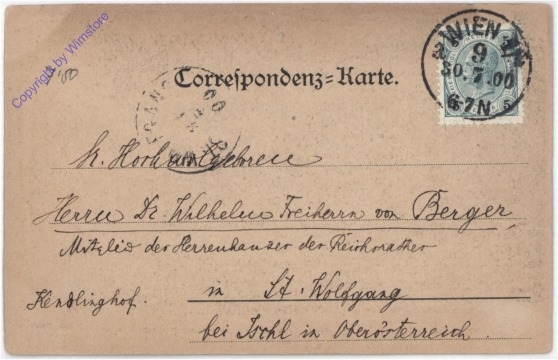 Copyright by Wimstore
WIEN
9
30.7.00
6-7N
Correspondenz=Karte.
Sr. Hochwolgeboren
Herrn Dr. Wilhelm Freiherrn von Berger,
Mitglied der Herrenhauses der Reichsrathes
in St. Wolfgang
Kendlinghof.
bei Ischl in Oberösterreich.